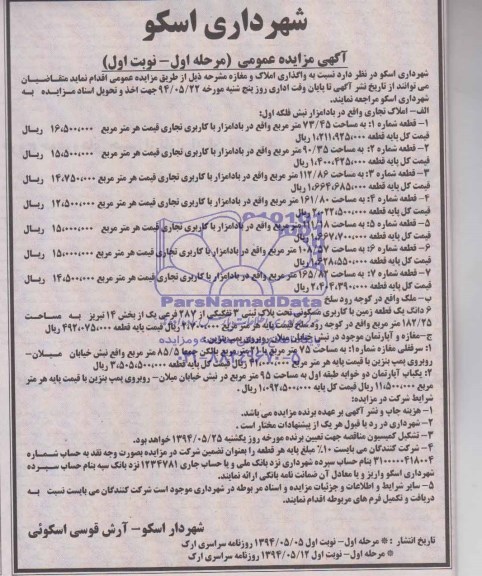 شهرداری اسکو
آگهی مزایده عمومی (مرحله اول- نوبت اول)
شهرداری اسکو در نظر دارد نسبت به واگذاری املاک و مغازه مشرحه ذیل از طریق مزایده عمومی اقدام نماید متقاضیان
می توانند از تاریخ نشر آگهی تا پایان وقت اداری روز پنج شنبه مورخه ۹۴/۰۵/۲۲ جهت اخذ و تحویل اسناد مزایده به
شهرداری اسکو مراجعه نمایند.
الف- املاک تجاری واقع در بادامزار نبش فلکه اول:
۱- قطعه شماره ۱: به مساحت ۷۳/۴۵ متر مربع واقع در بادامزار با کاربری تجاری قیمت هر متر مربع ۱۶،۵۰۰،۰۰۰ ریال
قیمت کل پایه قطعه ۱،۲۱۱،۹۲۵،۰۰۰ ریال
۲- قطعه شماره ۲: به مساحت ۹۰/۳۵ متر مربع واقع در بادامزار با کاربری تجاری قیمت هر متر مربع ۱۵،۵۰۰،۰۰۰ ریال
قیمت کل پایه قطعه ۱،۴۰۰،۴۲۵،۰۰۰ ریال
۳- قطعه شماره ۳: به مساحت ۱۱۲/۸۶ متر مربع واقع در بادامزار با کاربری تجاری قیمت هر متر مربع ۱۴،۷۵۰،۰۰۰ ریال
قیمت کل پایه قطعه ۱،۶۶۴،۶۸۵،۰۰۰ ریال
۴- قطعه شماره ۴: به مساحت ۱۶۱/۸۰ متر مربع واقع در بادامزار با کاربری تجاری قیمت هر متر مربع ۱۲،۵۰۰،۰۰۰ ریال
قیمت کل پایه قطعه ۲،۰۲۲،۵۰۰،۰۰۰ ریال
۵- قطعه شماره ۵: به مساحت ۱۱۱/۱۸ متر مربع واقع در بادامزار با کاربری تجاری قیمت هر متر مربع ۱۵،۰۰۰،۰۰۰ ریال
قیمت کل پایه قطعه ۱،۶۶۷،۷۰۰،۰۰۰ ریال
۶- قطعه شماره ۶: به مساحت ۱۰۸/۵۷ متر مربع واقع در بادامزار با کاربری تجاری قیمت هر متر مربع ۱۵،۰۰۰،۰۰۰ ریال
قیمت کل پایه قطعه ۱،۶۲۸،۵۵۰،۰۰۰ ریال
۷- قطعه شماره ۷: به مساحت ۱۶۵/۸۲ متر مربع واقع در بادامزار با کاربری تجاری قیمت هر متر مربع ۱۴،۵۰۰،۰۰۰ ریال
قیمت کل پایه قطعه ۲،۴۰۴،۳۹۰،۰۰۰ ریال
ب- ملک واقع در کوچه رود ملخ
۶ دانگ یک قطعه زمین با کاربری مسکونی تحت پلاک ثبتی ۳ تفکیکی از ۲۸۷ فرعی یک از بخش ۱۴ تبریز به مساحت
۱۸۲/۲۵ متر مربع واقع در کوچه رود ملخ قیمت پایه هر متر مربع ۲،۷۰۰،۰۰۰ ریال قیمت پایه قطعه ۴۹۲،۰۷۵،۰۰۰ ریال
ج- مغازه و آپارتمان موجود در نبش خیابان میلان- روبروی پمپ بنزین:
۱: سرقفلی مغازه شماره ۱: به مساحت ۷۵ متر مربع با متر مربع بالکن جمعا ۸۵/۵ متر مربع واقع نبش خیابان میلان-
روبروی پمپ بنزین با قیمت پایه هر متر مربع ریال قیمت کل پایه قطعه ۳،۵۰۵،۵۰۰،۰۰۰ ریال
۲: یکباب آپارتمان دو خوابه طبقه اول به مساحت ۹۵ متر مربع در نبش خیابان میلان- روبروی پمپ بنزین با قیمت پایه هر متر
مربع ۱۱،۵۰۰،۰۰۰ ریال قیمت کل پایه ۱،۰۹۲،۵۰۰،۰۰۰ ریال .
شرایط شرکت در مزایده:
۱- هزینه چاپ و نشر آگهی بر عهده برنده مزایده می باشد.
۲- شهرداری در رد یا قبول هر یک از پیشنهادات مختار است .
۳- تشکیل کمیسیون مناقصه جهت تعیین برنده مورخه روز یکشنبه ۱۳۹۴/۰۵/۲۵ خواهد بود.
۴- شرکت کنندگان می بایست ۱۰٪ مبلغ پایه هر قطعه را بعنوان تضمین شرکت در مزایده بصورت وجه نقد به حساب شماره
۳۱۰۰۰۰۰۴۱۸۰۰۴ بنام حساب سپرده شهرداری نزد بانک ملی و یا حساب جاری ۱۲۳۴۷۸۱ نزد بانک سپه بنام حساب سپرده
شهرداری اسکو واریز و یا معادل آن ضمانت نامه بانکی ارائه نمایند.
۵- سایر شرایط و اطلاعات و جزئیات مزایده و اسناد مربوطه در شهرداری موجود است شرکت کنندگان می بایست نسبت به
دریافت و تکمیل فرم های مربوطه اقدام نمایند.
شهردار اسکو- آرش قوسی اسکوئی
تاریخ انتشار : * مرحله اول- نوبت اول ۱۳۹۴/۰۵/۰۵ روزنامه سراسری ارک
* مرحله اول- نوبت دوم ۱۳۹۴/۰۵/۱۲ روزنامه سراسری ارک
ParsNamadData